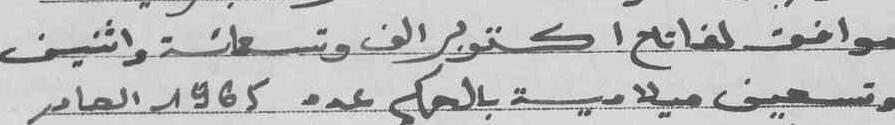 موافق لفاتح اكتوبر الف وتسعمائة واثنين
وتسعين ميلادية بالحكم عدد 1965 الصادر